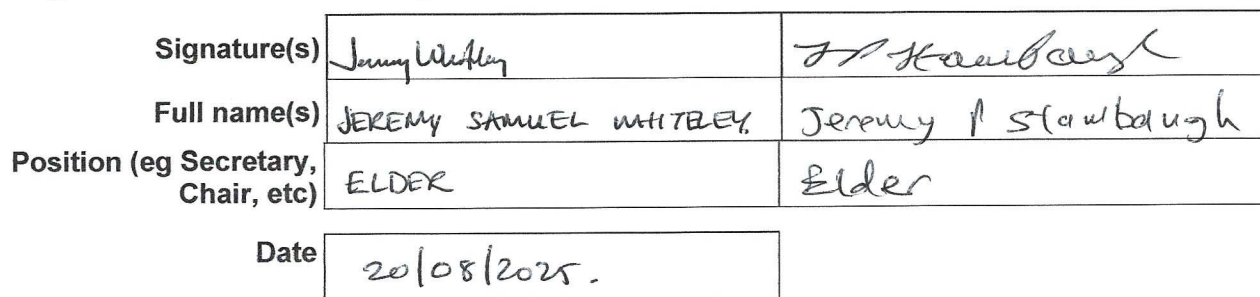 Signature(s) Jeremy Whiteley JP Stawbaugh
Full name(s) JEREMY SAMUEL WHITELEY. Jeremy P Stawbaugh
Position (eg Secretary,
Chair, etc) ELDER Elder
Date 20/08/2025.